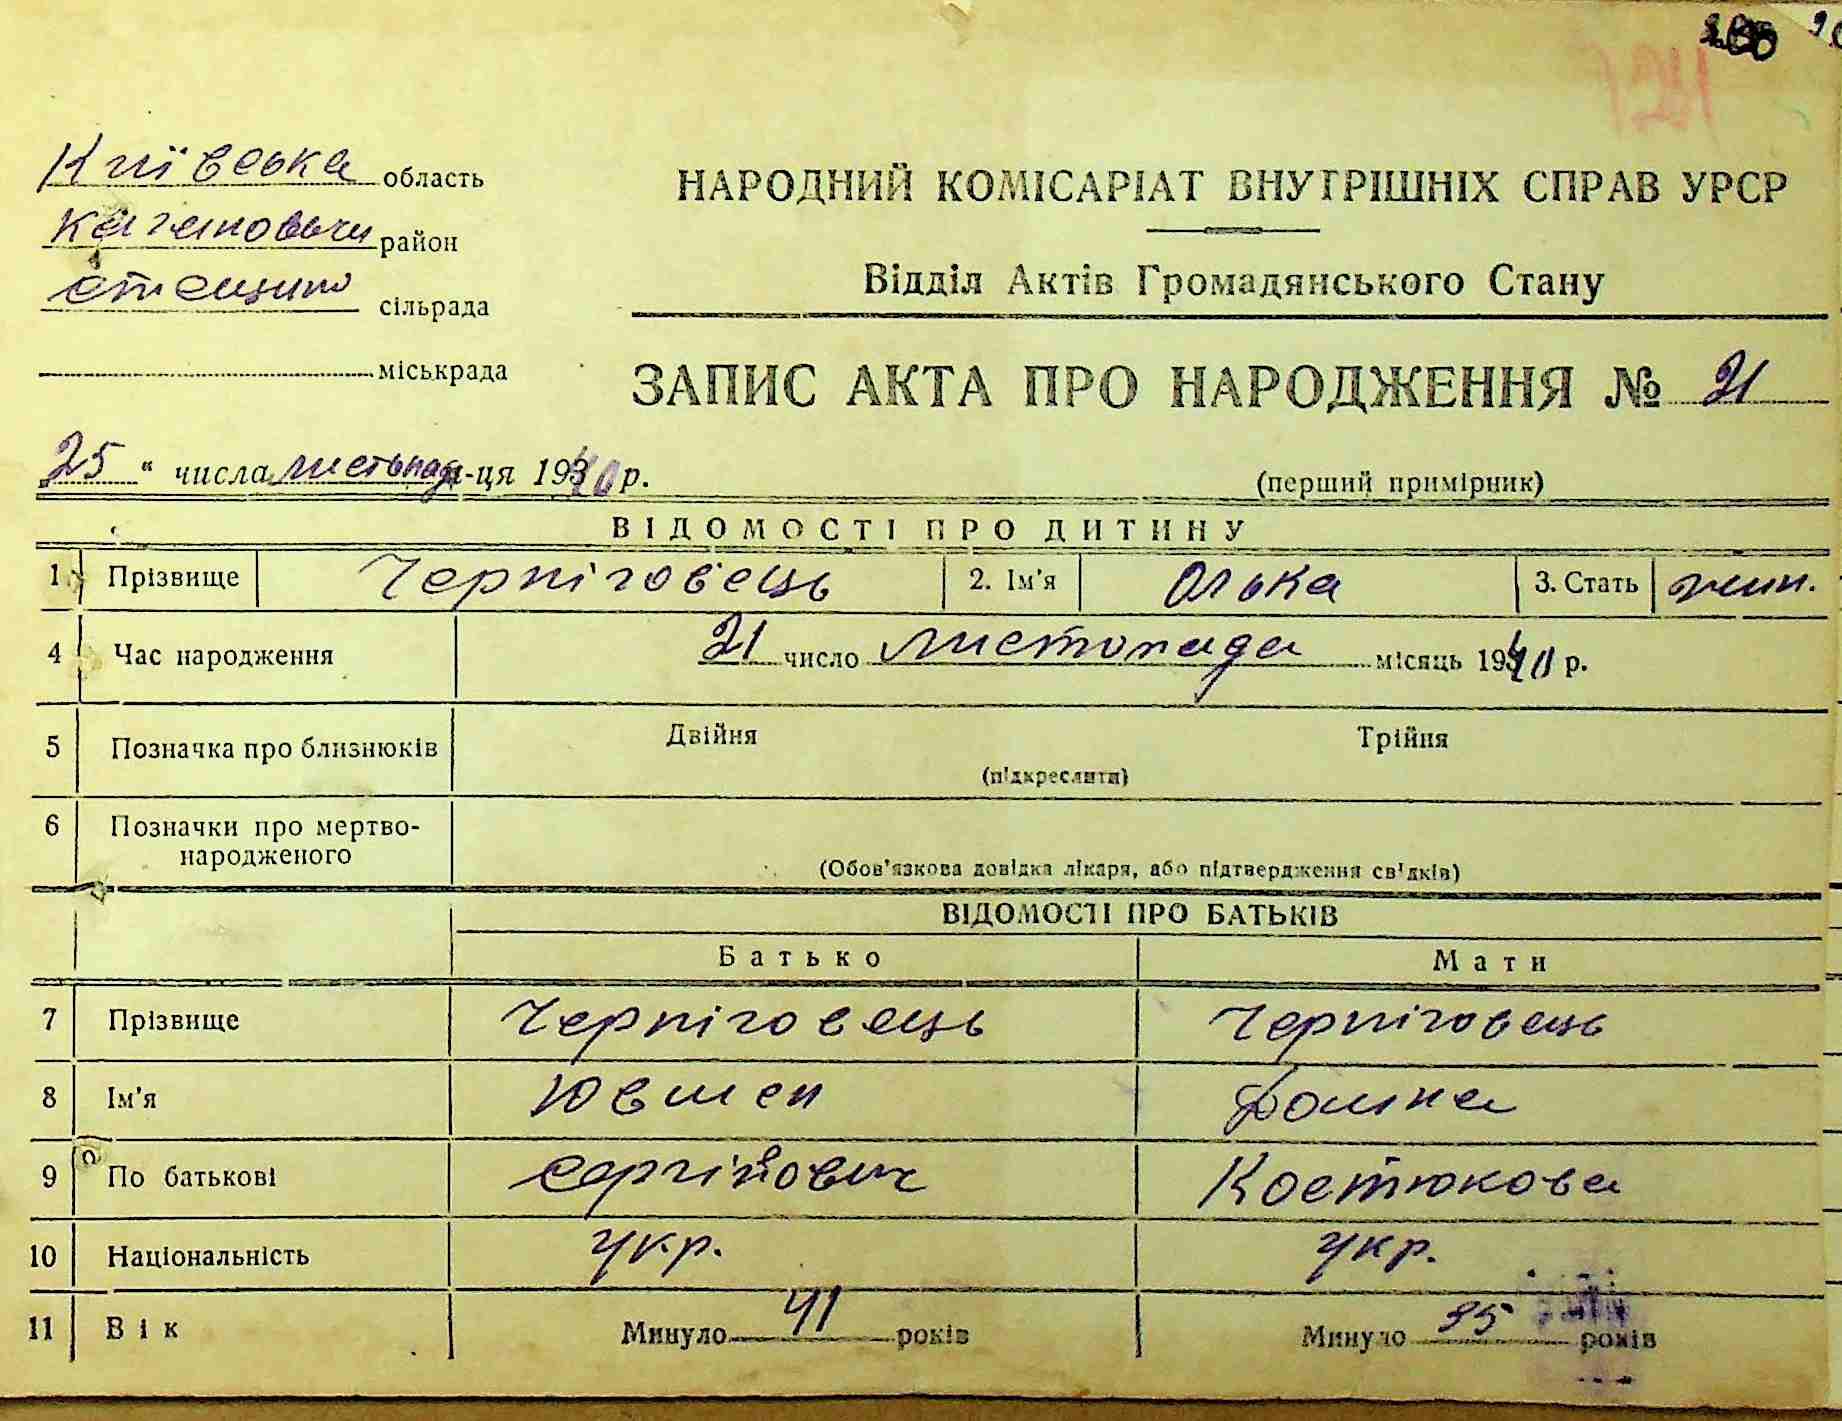 Київська область
Кагановичи район
стещино сільрада
міськрада
НАРОДНИЙ КОМІСАРІАТ ВНУТРІШНІХ СПРАВ УРСР
Відділ Актів Громадянського Стану
ЗАПИС АКТА ПРО НАРОДЖЕННЯ № 21
25 " числа листьпада -ця 1940 р.
(перший примірник)
ВІДОМОСТІ ПРО ДИТИНУ
1 Прізвище Черніговець 2. Ім'я Олька 3. Стать жін.
4 Час народження 21 число листопада місяць 1940 р.
5 Позначка про близнюків Двійня Трійня
(підкреслити)
6 Позначки про мертво-
народженого
(Обов'язкова довідка лікаря, або підтвердження свідків)
ВІДОМОСТІ ПРО БАТЬКІВ
Батько Мати
7 Прізвище Черніговець Черніговець
8 Ім'я Ювмен Домна
9 По батькові Сергійович Костюкова
10 Національність укр. укр.
11 Вік Минуло 41 років Минуло 35 років